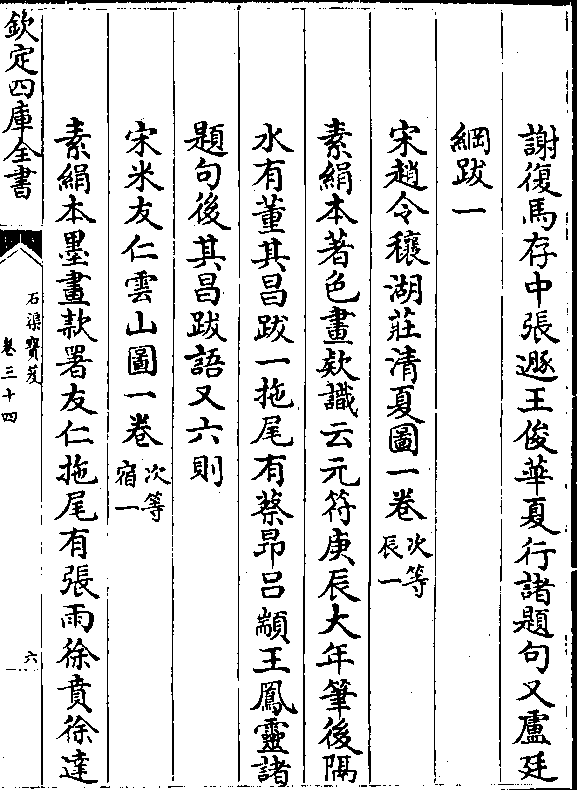 謝復馬存中張遯王俊華夏行諸題句又盧廷
綱跋一
宋趙令穰湖莊清夏圖一卷次等辰一
素絹本著色畫欵識云元符庚辰大年筆後隔
水有董其昌跋一拖尾有蔡昂呂顓王鳳靈諸
題句後其昌跋語又六則
宋米友仁雲山圖一卷次等宿一
素絹本墨畫款署友仁拖尾有張雨徐賁徐達
欽定四庫全書
石渠寶笈
卷三十四
六